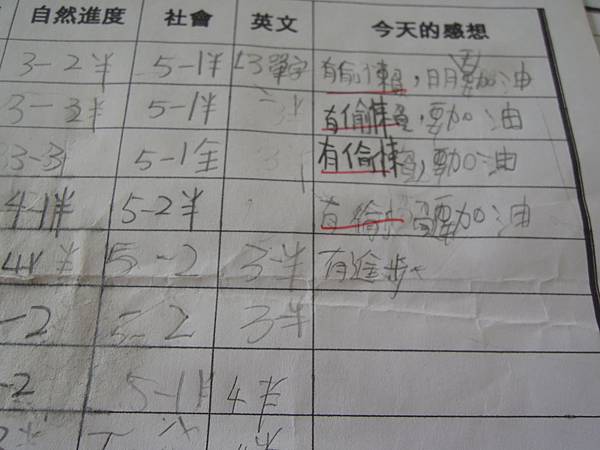 自然進度 社會 英文 今天的感想
3-2半 5-1半 L3單字 有偷懶,明天要加油
3-3半 5-1半 有偷懶,要加油
3-3 5-1全 有偷懶,要加油
4-1半 5-2半 有偷懶要加油
半 5-2 3半 有進步
-2 5-2 3半
-2 5-1半 4半
半